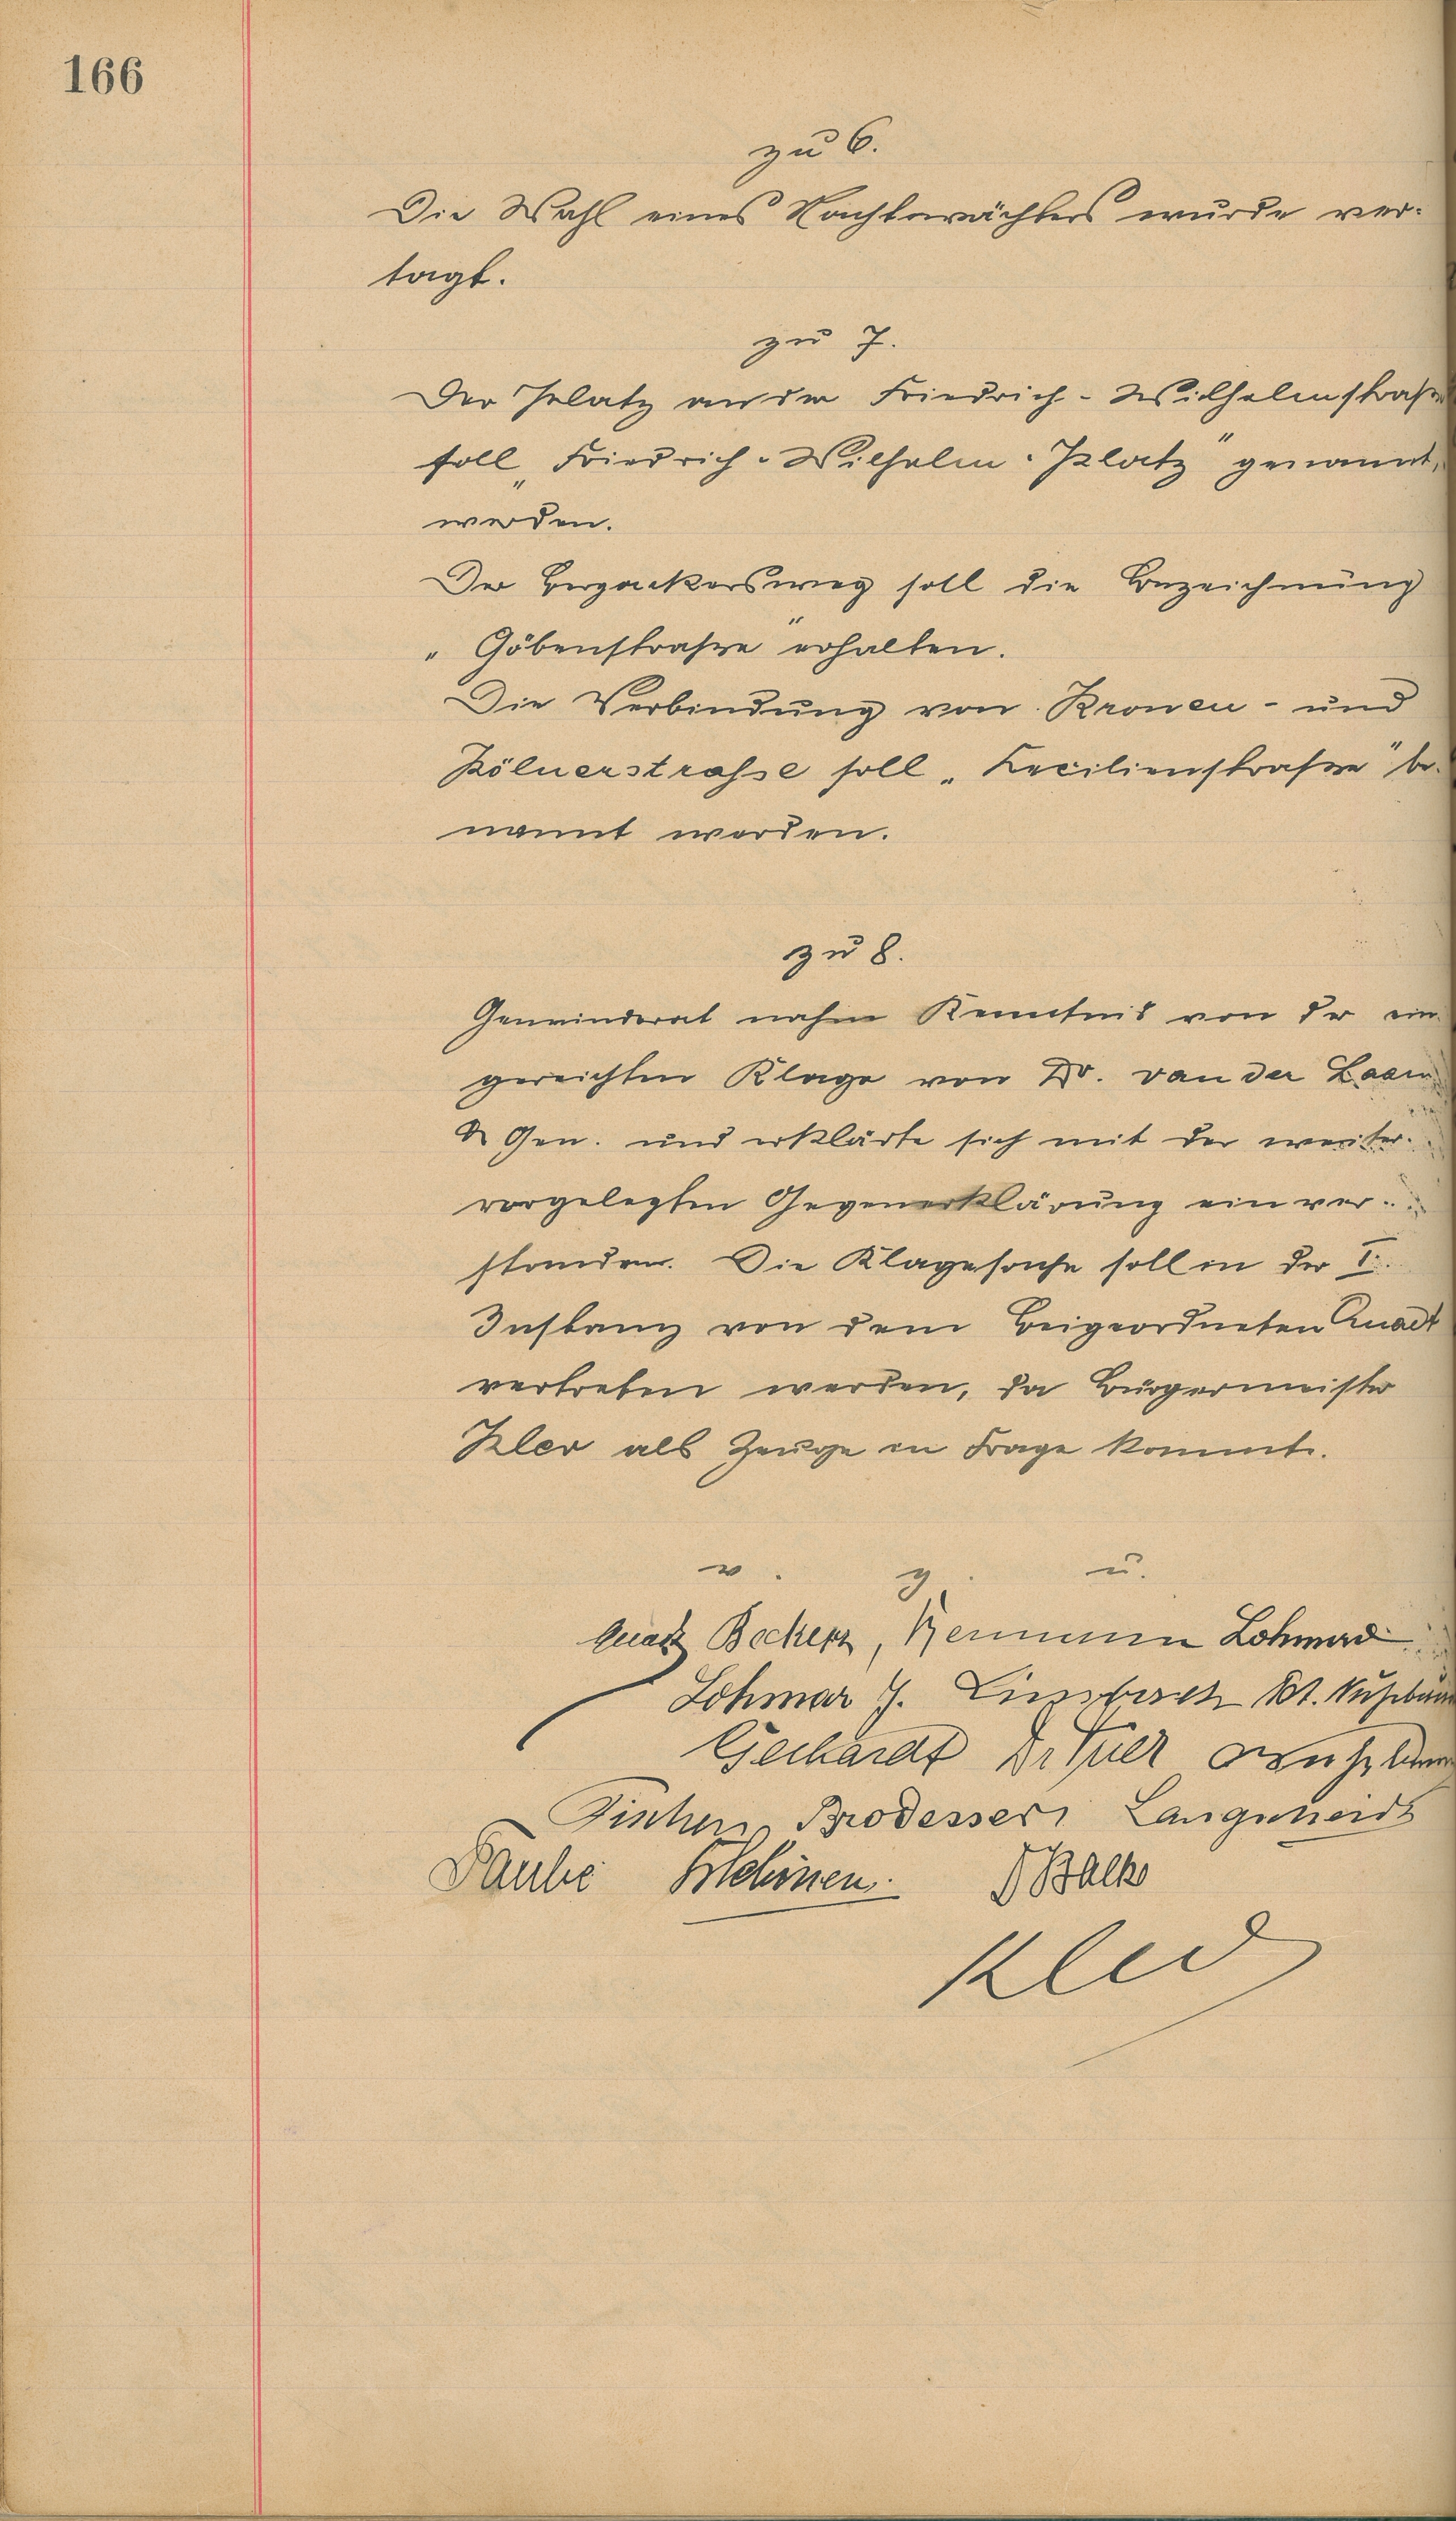 166
zu 6.
Die Wahl eines Nachtwächters wurde ver-
tagt.
zu 7.
Der Platz an der Friedrich-Wilhelmstraße
soll „Friedrich-Wilhelm-Platz" genannt
werden.
Der Bergackersweg soll die Bezeichnung
„Göbenstraße" erhalten.
Die Verbindung von Kronen- und
Kölnerstrasse soll „Cecilienstraße" be-
nannt werden.
zu 8.
Gemeinderat nahm Kenntnis von der ein-
gereichten Klage von Dr. van der Laan
& Gen. und erklärte sich mit der weiter
vorgelegten Gegenerklärung einver-
standen. Die Klagesache soll in der I.
Instanz von dem Beigeordneten Quadt
vertreten werden, da Bürgermeister
Klev als Zeuge in Frage kommt.
v. g. u.
Beckers, Lohmar
Lohmar J.
Gerhardt Dr
Fischer, Brodesser, Langscheidt
Schönen. Balk
Klev